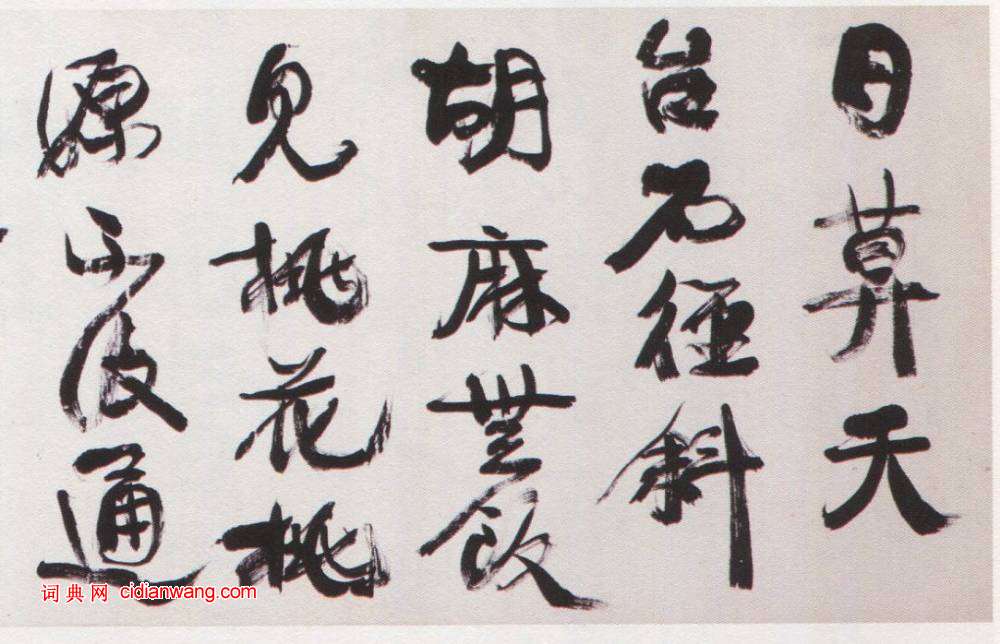 日莫天
台石徑斜
胡麻無飯
見桃花桃
源不復通
词典网 cidianwang.com